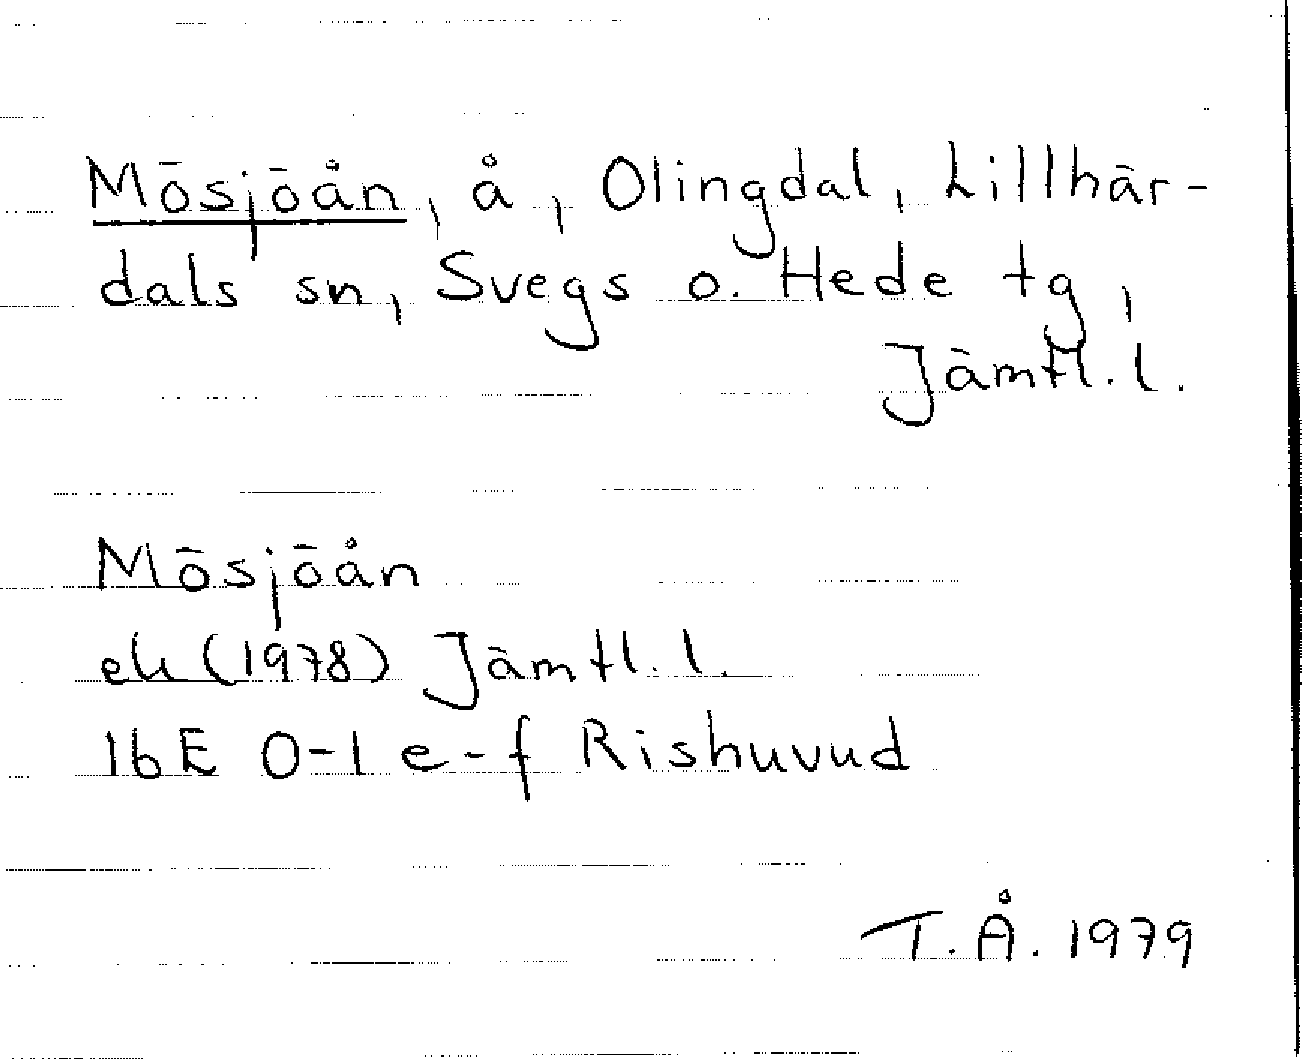 Mösjöån, å, Olingdal, Lillhär-
dals sn, Svegs o. Hede tg,
Jämtl. l.
Mösjöån
ek (1978) Jämtl. l.
16E 0-1 e-f Rishuvud
T. Å. 1979